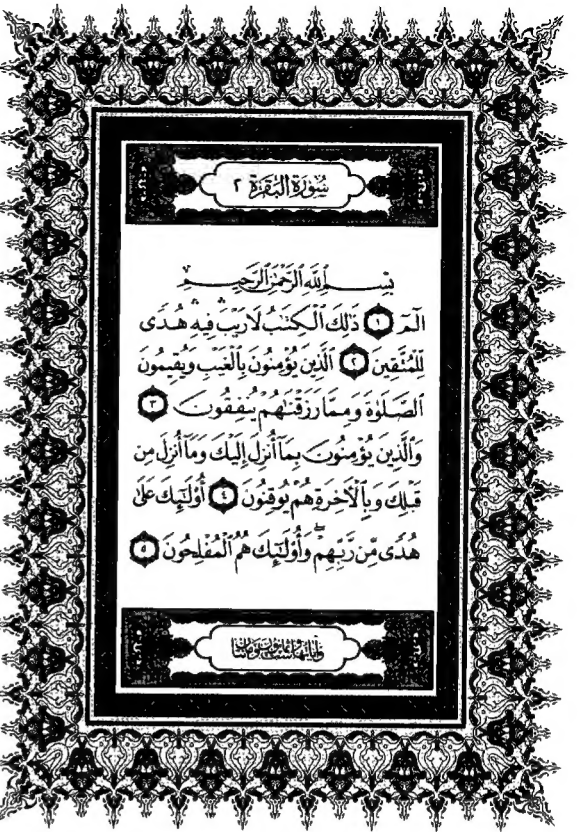 سُورَةُ البَقَرَةِ ٢
بِسْمِ اللَّهِ الرَّحْمَٰنِ الرَّحِيمِ
الٓمٓ ١ ذَٰلِكَ الْكِتَٰبُ لَا رَيْبَ ۛ فِيهِ ۛ هُدًى
لِّلْمُتَّقِينَ ٢ الَّذِينَ يُؤْمِنُونَ بِالْغَيْبِ وَيُقِيمُونَ
الصَّلَوٰةَ وَمِمَّا رَزَقْنَٰهُمْ يُنفِقُونَ ٣
وَالَّذِينَ يُؤْمِنُونَ بِمَآ أُنزِلَ إِلَيْكَ وَمَآ أُنزِلَ مِن
قَبْلِكَ وَبِالْآخِرَةِ هُمْ يُوقِنُونَ ٤ أُو۟لَٰٓئِكَ عَلَىٰ
هُدًى مِّن رَّبِّهِمْ ۖ وَأُو۟لَٰٓئِكَ هُمُ الْمُفْلِحُونَ ٥